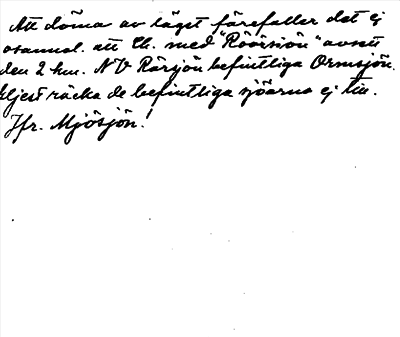 Att döma av läget förefaller det ej
osannol. att Lh. med "Röörsiön" avsett
den 2 km. NV Rörsjön befintliga Ormsjön.
Eljest räcka de befintliga sjöarna ej till.
Jfr. Mjösjön!